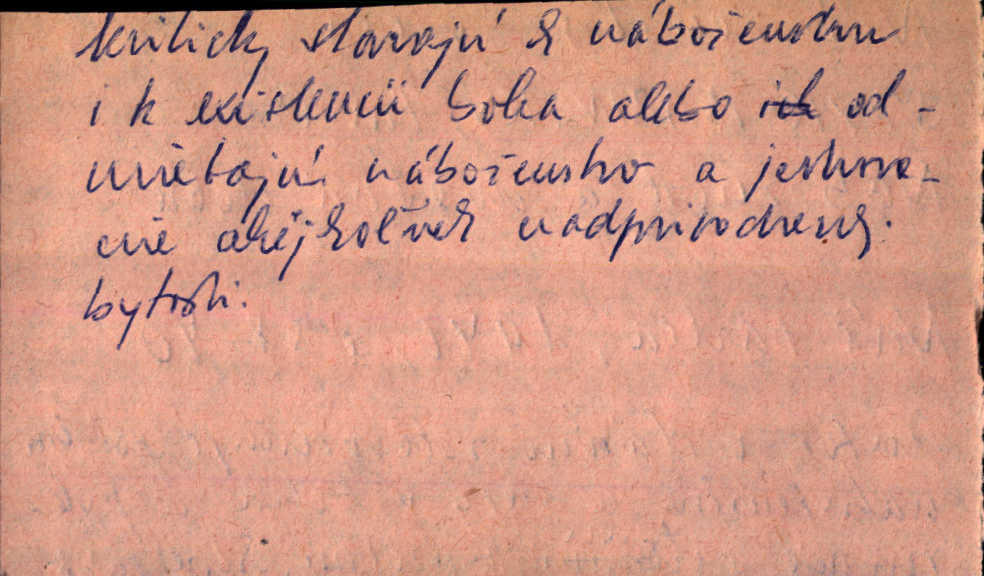 kriticky stavajú k náboženstvu
i k existencii boha alebo ich od-
mietajú náboženstvo a jestvova-
nie akejkoľvek nadprirodzenej
bytosti.